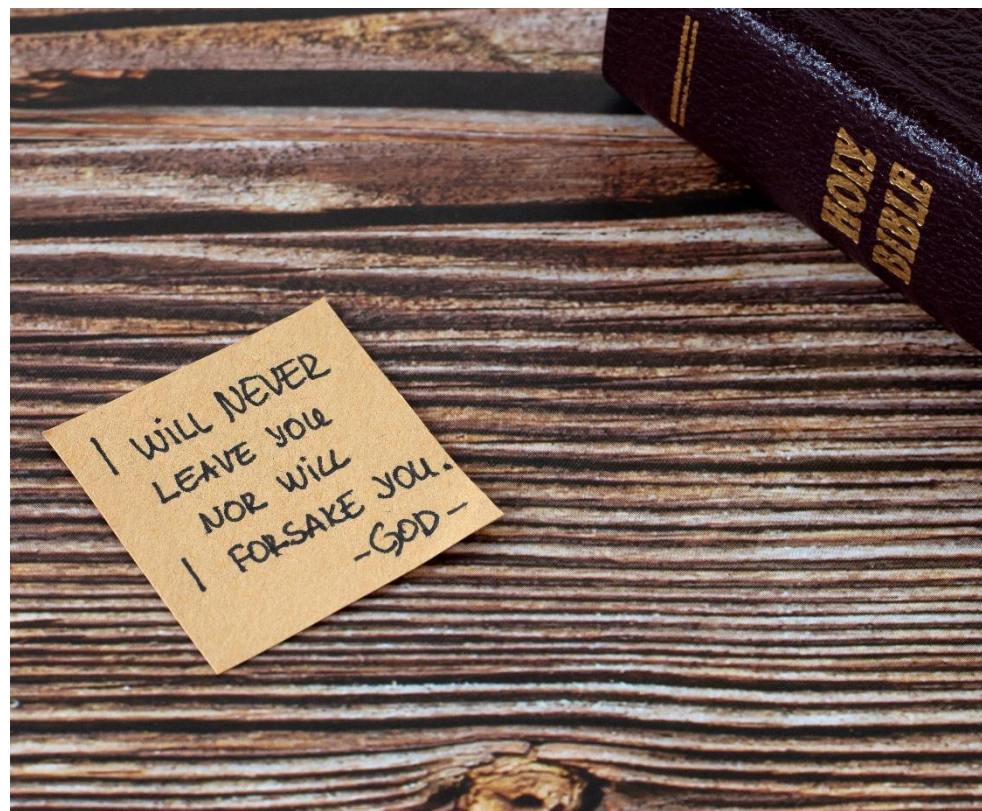 HOLY
BIBLE
I WILL NEVER
LEAVE YOU
NOR WILL
I FORSAKE YOU.
-GOD-